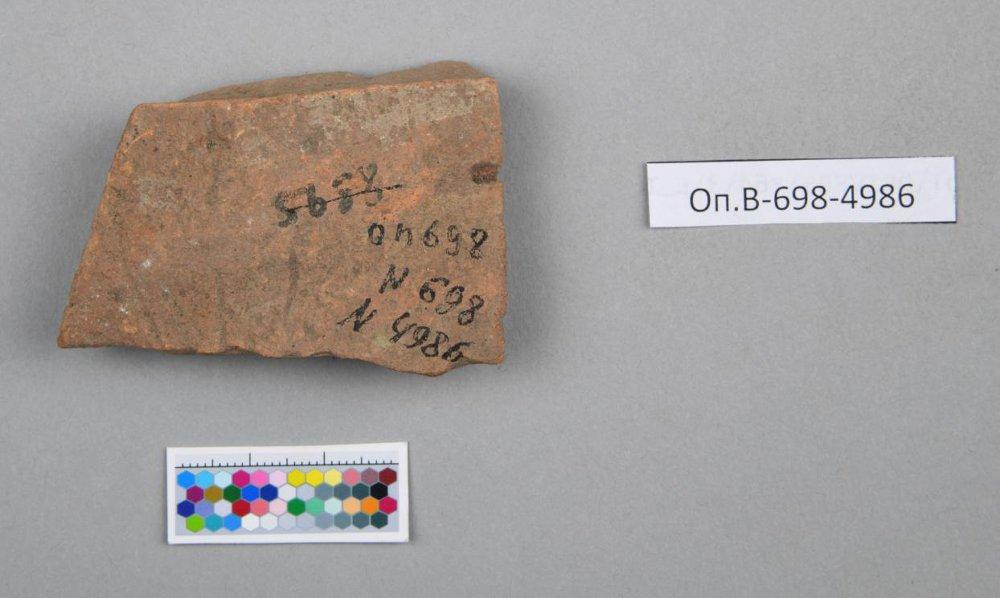 5689
оп698
N 698
N 4986
Оп.В-698-4986